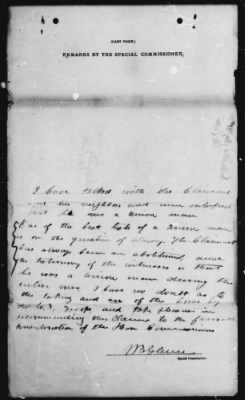 (LAST PAGE.)
REMARKS BY THE SPECIAL COMMISSIONER.
I have talked with the Claimant
and his neighbors and am satisfied
that he was a Union man
One of the best tests of a Union man
is on the question of slavery. The Claimant
has always been an abolitionist, and
the testimony of the witnesses is that
he was a Union man during the
entire war. I have no doubt as to
the taking and use of the horse by
the U.S. troops and take pleasure in
recommending this Claim to the favorable
consideration of the Hon Commissioners
Special Commissioner.